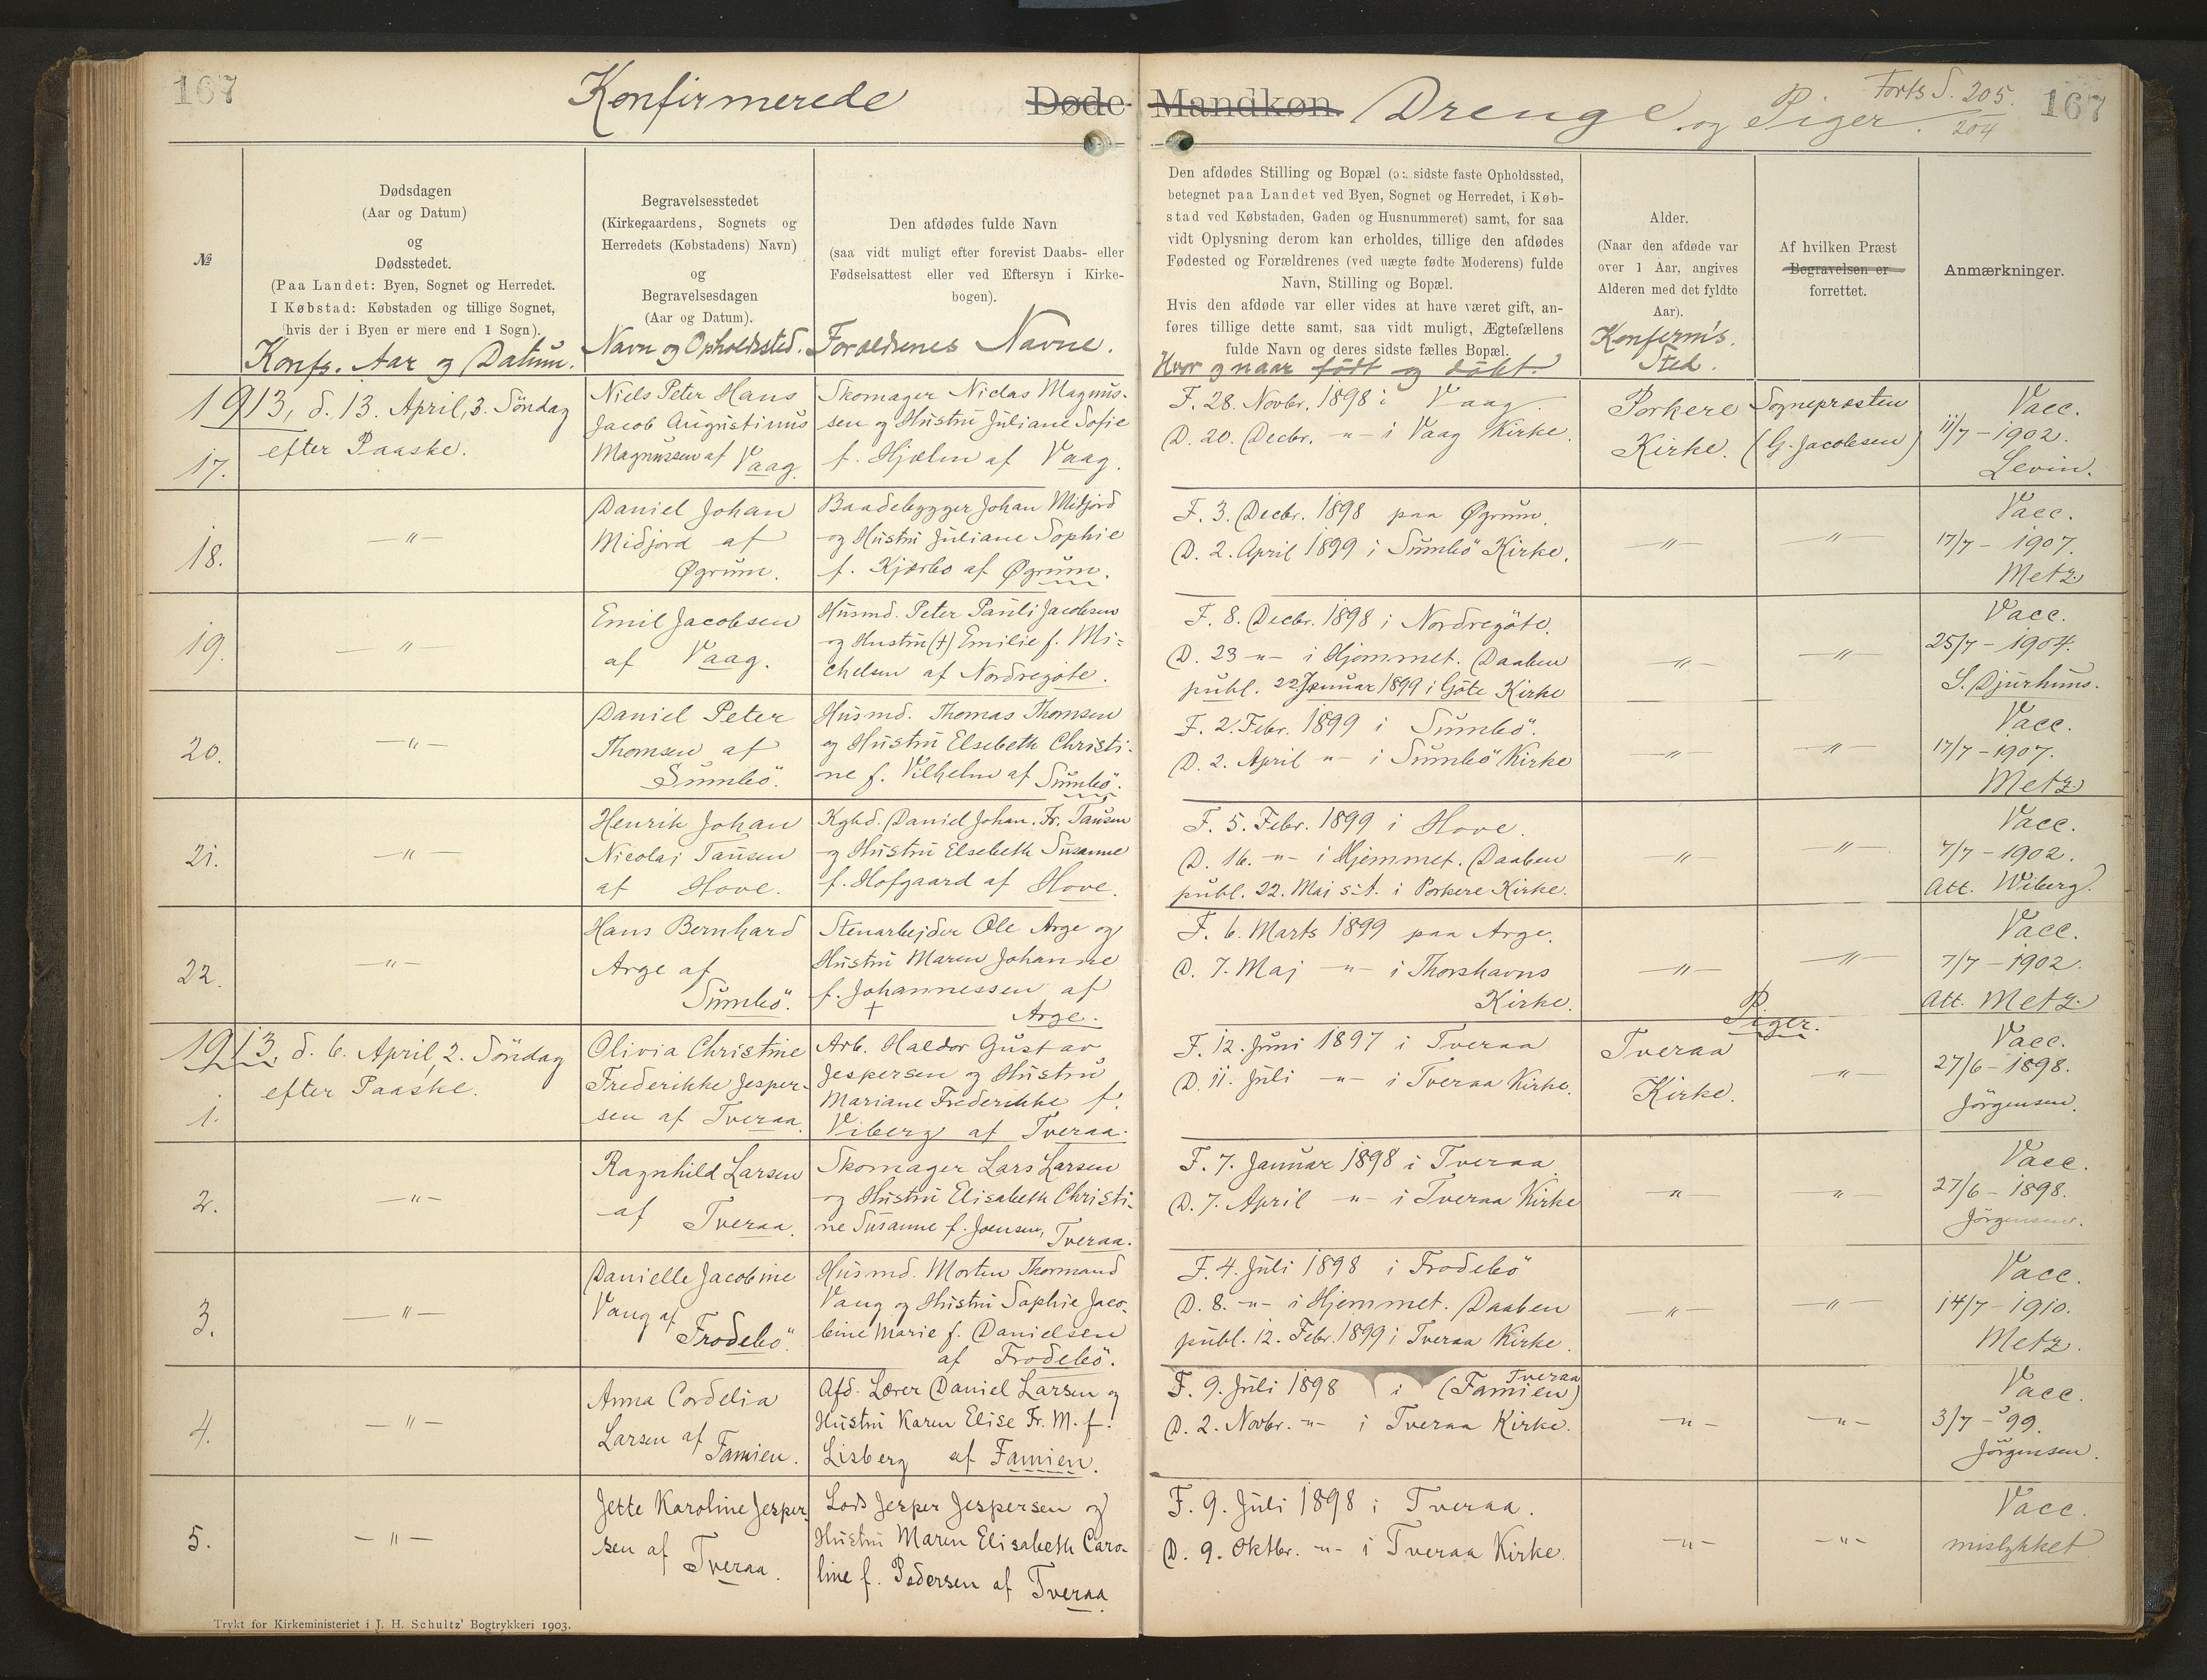 167
Konfirmerede Døde Mandkøn. Drenge og Piger.
Forts S. 205.
204
167
№
Dødsdagen
(Aar og Datum)
og
Dødsstedet.
(Paa Landet: Byen, Sognet og Herredet.
I Købstad: Købstaden og tillige Sognet,
hvis der i Byen er mere end 1 Sogn).
Konfs. Aar og Datum.
Begravelsesstedet
(Kirkegaardens, Sognets og
Herredets (Købstadens) Navn)
og
Begravelsesdagen
(Aar og Datum).
Navn og Opholdssted.
Den afdødes fulde Navn
(saa vidt muligt efter forevist Daabs- eller
Fødselsattest eller ved Eftersyn i Kirke-
bogen).
Forældrenes Navne.
Den afdødes Stilling og Bopæl (ɔ: sidste faste Opholdssted,
betegnet paa Landet ved Byen, Sognet og Herredet, i Køb-
stad ved Købstaden, Gaden og Husnummeret) samt, for saa
vidt Oplysning derom kan erholdes, tillige den afdødes
Fødested og Forældrenes (ved uægte fødte Moderens) fulde
Navn, Stilling og Bopæl.
Hvis den afdøde var eller vides at have været gift, an-
føres tillige dette samt, saa vidt muligt, Ægtefællens
fulde Navn og deres sidste fælles Bopæl.
Hvor og naar født og døbt.
Alder.
(Naar den afdøde var
over 1 Aar, angives
Alderen med det fyldte
Aar).
Konferm's.
Sted.
Af hvilken Præst
Begravelsen er
forrettet.
Anmærkninger.
1913, d. 13. April, 3. Söndag
efter Paaske.
17.
Niels Peter Hans
Jacob Augustinus
Magnussen af Vaag.
Skomager Niclas Magnus-
sen og Hustru Juliane Sofie
f. Hjelm af Vaag.
F. 28. Novbr. 1898 i Vaag.
D. 20. Decbr. -"- i Vaag Kirke.
Porkere
Kirke.
Sognepræsten
(G. Jacobsen)
Vacc.
11/7 - 1902.
Levin.
18.
-"-
Daniel Johan
Midjord af
Øgrum.
Baadebygger Johan Mitjord
og Hustru Juliane Sophie
f. Kjærbo af Øgrum.
F. 3. Decbr. 1898 paa Øgrum.
D. 2. April 1899 i Sumbö Kirke.
-"-
-"-
Vacc.
17/7 - 1907.
Metz
19.
-"-
Emil Jacobsen
af Vaag.
Husmd. Peter Pauli Jacobsen
og Hustru (†) Emilie f. Mi-
chelsen af Nordregöte.
F. 8. Decbr. 1898 i Nordregöte.
D. 23 -"- i Hjemmet. Daaben
publ. 22 Januar 1899 i Göte Kirke
-"-
-"-
Vacc.
25/7 - 1904.
S. Djurhuus.
20.
-"-
Daniel Peter
Thomsen af
Sumbö.
Husmd. Thomas Thomsen
og Hustru Elsebeth Christi-
ne f. Vilhelm af Sumbö.
F. 2. Febr. 1899 i Sumbö.
D. 2. April -"- i Sumbö Kirke
-"-
-"-
Vacc.
17/7 - 1907.
Metz
21.
-"-
Henrik Johan
Nicolai Tausen
af Hove.
Kgbd. Daniel Johan. Fr. Tausen
og Hustru Elsebeth Susanne
f. Hofgaard af Hove.
F. 5. Febr. 1899 i Hove.
D. 16. -"- i Hjemmet. Daaben
publ. 22. Maj s.A. i Porkere Kirke.
-"-
-"-
Vacc.
7/7 - 1902.
Att. Wiberg.
22.
-"-
Hans Bernhard
Arge af
Sumbö.
Stenarbejder Ole Arge og
Hustru Maren Johanne
f. Johannessen af
† Arge.
F. 6. Marts 1899 paa Arge.
D. 7. Maj -"- i Thorshavns
Kirke.
-"-
-"-
Vacc.
7/7 - 1902.
Att. Metz.
P.
Piger.
1913, d. 6. April, 2. Söndag
efter Paaske.
1.
Olivia Christine
Frederikke Jesper-
sen af Tveraa.
Arb. Haldor Gustav
Jespersen og Hustru
Mariane Frederikke f.
Viberg af Tveraa.
F. 12. Juni 1897 i Tveraa
D. 11. Juli -"- i Tveraa Kirke.
Tveraa
Kirke.
-"-
Vacc.
27/6 - 1898.
Jörgensen.
2.
-"-
Ragnhild Larsen
af Tveraa.
Skomager Lars Larsen
og Hustru Elisabeth Christi-
ne Susanne f. Joensen, Tveraa.
F. 7. Januar 1898 i Tveraa.
D. 7. April -"- i Tveraa Kirke
-"-
"
Vacc.
27/6 - 1898.
Jörgensen.
3.
-"-
Danielle Jacobine
Vang af
Frodebö.
Husmd. Morten Thormand
Vang og Hustru Sophie Jaco-
bine Marie f. Danielsen
af Frodebö.
F. 4. Juli 1898 i Frodebö
D. 8. -"- i Hjemmet. Daaben
publ. 12. Febr. 1899 i Tveraa Kirke.
-"-
-"-
Vacc.
14/7 - 1910.
Metz.
4.
-"-
Anna Cordelia
Larsen af
Famien.
Afd. Lærer Daniel Larsen og
Hustru Karen Elise Fr. M. f.
Lisberg af Famien.
Tveraa
F. 9. Juli 1898 i (Famien)
D. 2. Novbr. -"- i Tveraa Kirke.
-"-
-"-
Vacc.
3/7 - '99.
Jörgensen.
5.
-"-
Jette Karoline Jesper-
sen af
Tveraa.
Lods Jesper Jespersen og
Hustru Maren Elisabeth Caro-
line f. Pedersen af Tveraa
F. 9. Juli 1898 i Tveraa.
D. 9. Oktbr. -"- i Tveraa Kirke.
-"-
-"-
Vacc.
mislykket
Trykt for Kirkeministeriet i J. H. Schultz' Bogtrykkeri 1903.